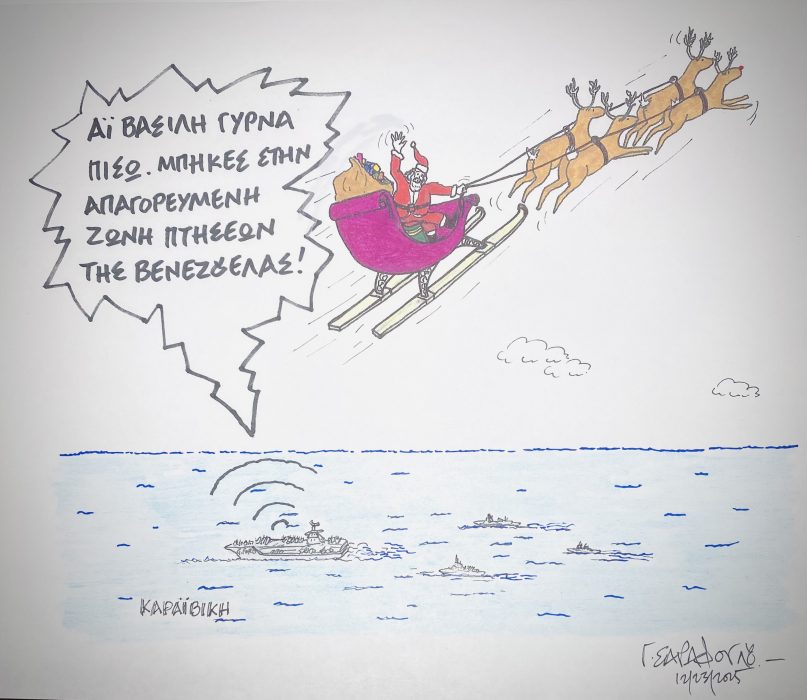 ΑΪ ΒΑΣΙΛΗ ΓΥΡΝΑ
ΠΙΣΩ. ΜΠΗΚΕΣ ΣΤΗΝ
ΑΠΑΓΟΡΕΥΜΕΝΗ
ΖΩΝΗ ΠΤΗΣΕΩΝ
ΤΗΣ ΒΕΝΕΖȣΕΛΑΣ!
ΚΑΡΑΪΒΙΚΗ
Γ. ΣΑΡΑΦΟΓΛΟΥ
12/23/2025